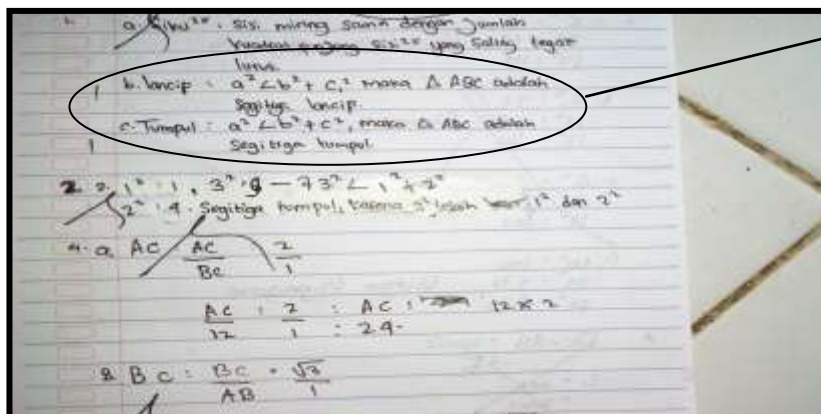 1. a. Siku²: Sisi miring sama dengan jumlah
kuadrat panjang sisi²n yang saling tegak
lurus.
1 b. lancip : a² < b² + c², maka △ ABC adalah
Segitiga lancip.
c. Tumpul : a² < b² + c², maka △ ABC adalah
1 Segitiga tumpul
2 2. 1² : 1, 3² : 9 → 3² < 1² + 2²
2² : 4. Segitiga tumpul, karena 3² lebih 1² dan 2²
4. a. AC AC/BC 2/1
AC/12 : 2/1 : AC : 12 x 2
: 24.
BC : BC/AB = √3/1